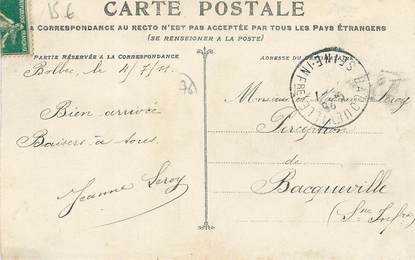 15 €
CARTE POSTALE
LA CORRESPONDANCE AU RECTO N'EST PAS ACCEPTÉE PAR TOUS LES PAYS ÉTRANGERS
(SE RENSEIGNER A LA POSTE)
PARTIE RÉSERVÉE A LA CORRESPONDANCE
ADRESSE DU DESTINATAIRE
Bolbec, le 4/7/11
Bien arrivée
Baisers à tous.
Jeanne Leroy
76
BACQUEVILLE
SEINE INFRE
Monsieur Leroy
Perception
de
Bacqueville
(Sne Infre)